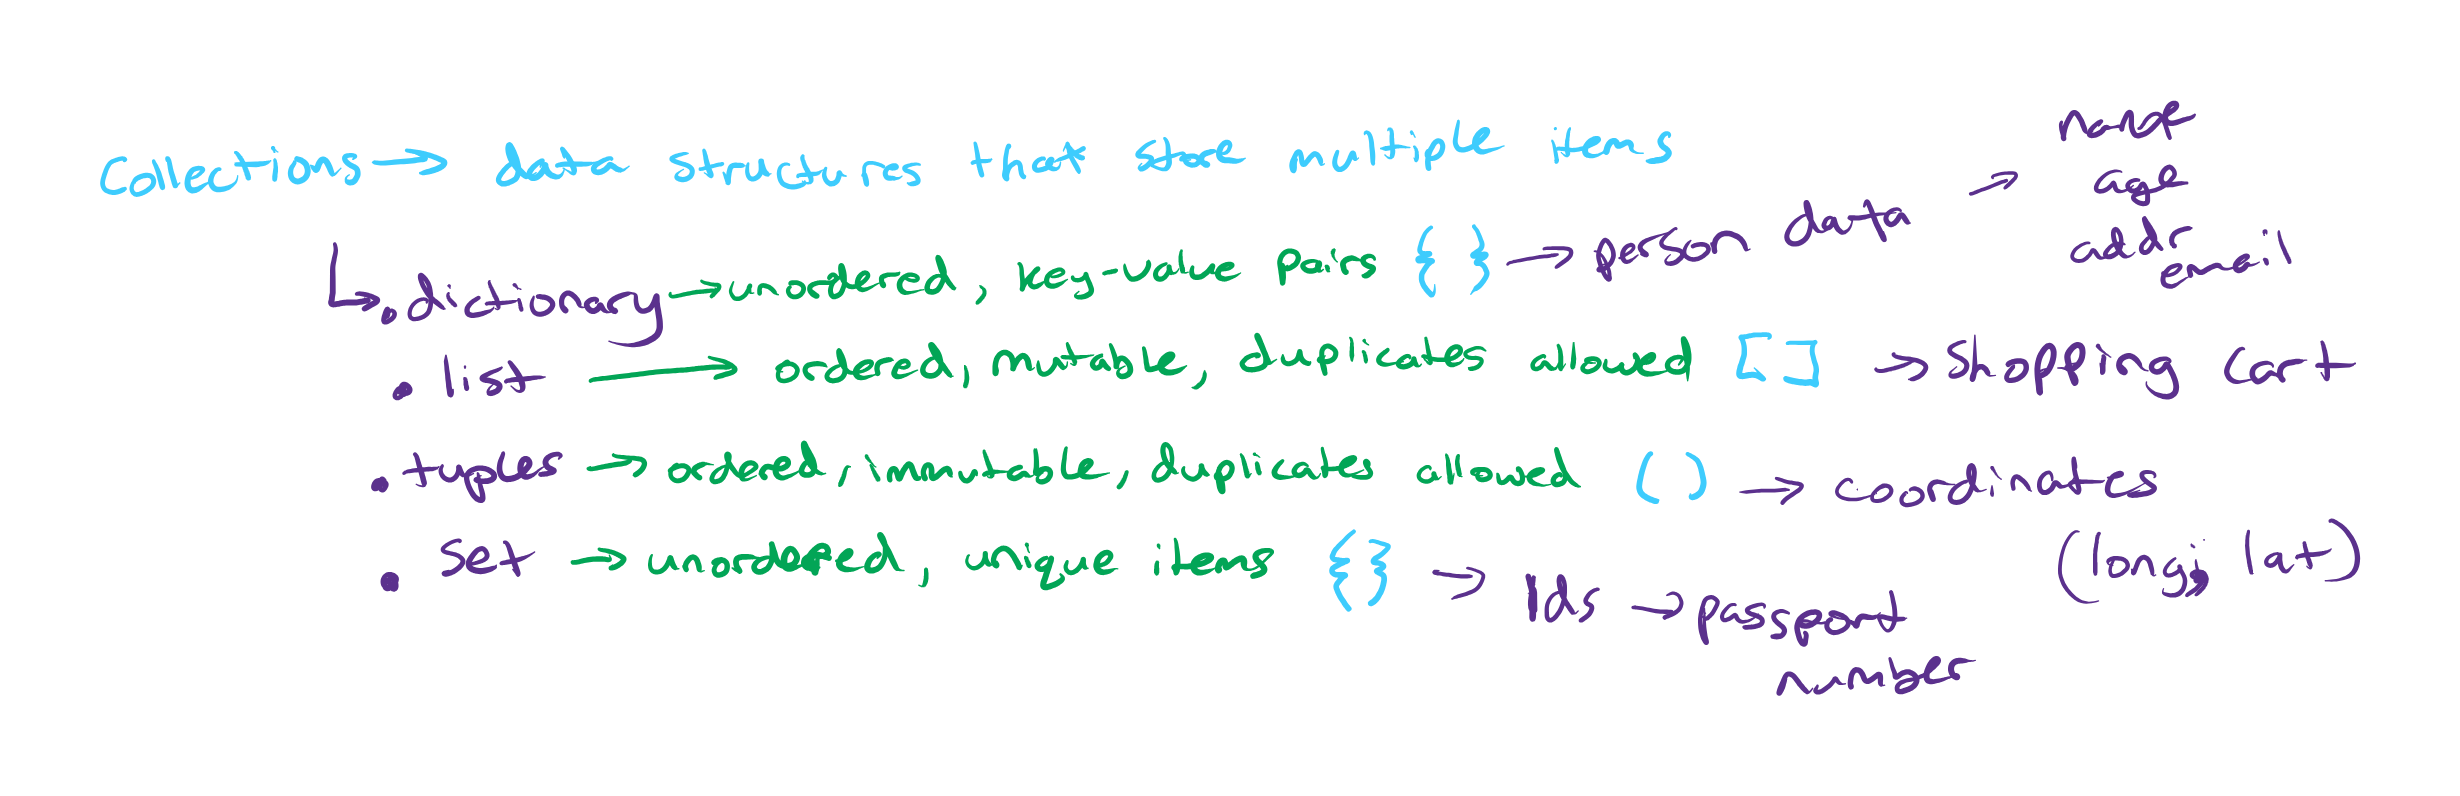 Collections → data structures that store multiple items
↳ • dictionary → unordered, key-value pairs { } → person data → name
age
addr
email
• list → ordered, mutable, duplicates allowed [ ] → shopping cart
• tuples → ordered, immutable, duplicates allowed ( ) → coordinates
(long, lat)
• set → unordered, unique items { } → Ids → passport
number